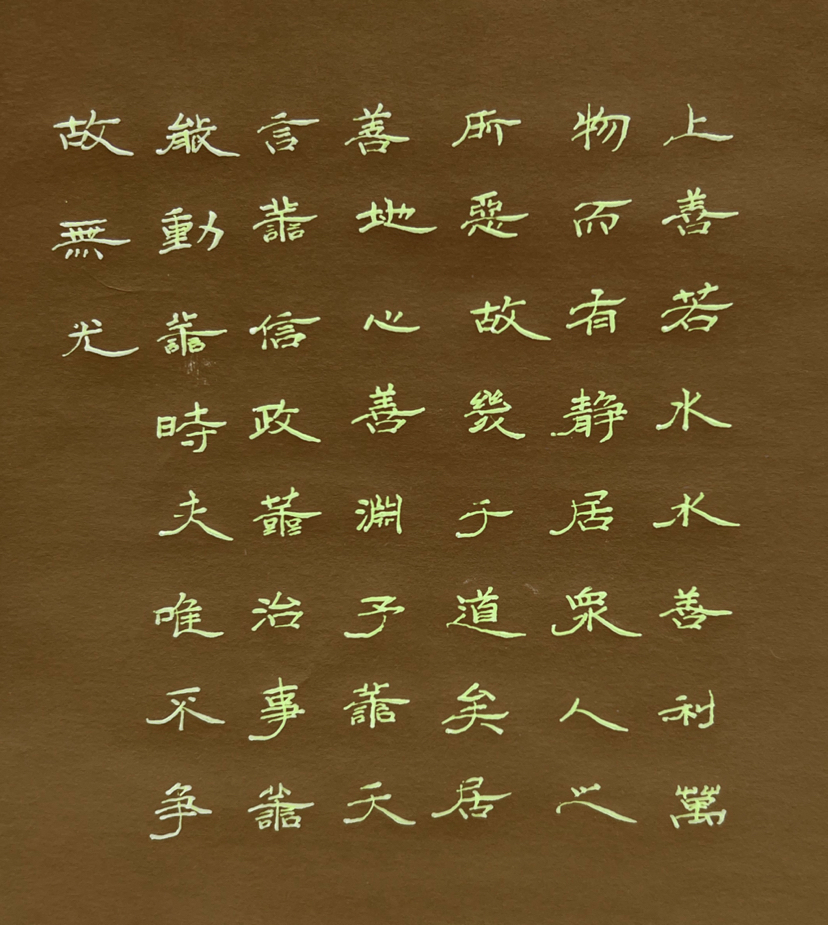 上善若水水善利萬
物而有靜居衆人之
所惡故幾于道矣居
善地心善淵予善天
言善信政善治事善
能動善時夫唯不爭
故無尤